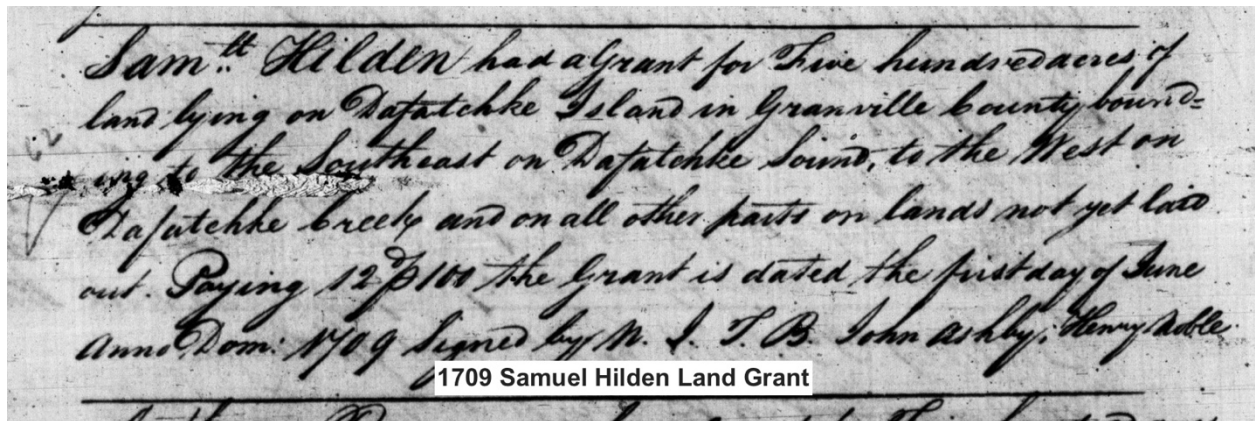 Sam:ll Hilden had a Grant for Five hundred acres of
land lying on Dafatchke Island in Granville County bound=
ing to the Southeast on Dafatchke Sound, to the West on
Dafatchke Creek and on all other parts on lands not yet laid
out. Paying 12 ⅌ 100 the Grant is dated the first day of June
Anno Dom: 1709 Signed by N. J. T. B. John Ashby, Henry Noble
1709 Samuel Hilden Land Grant